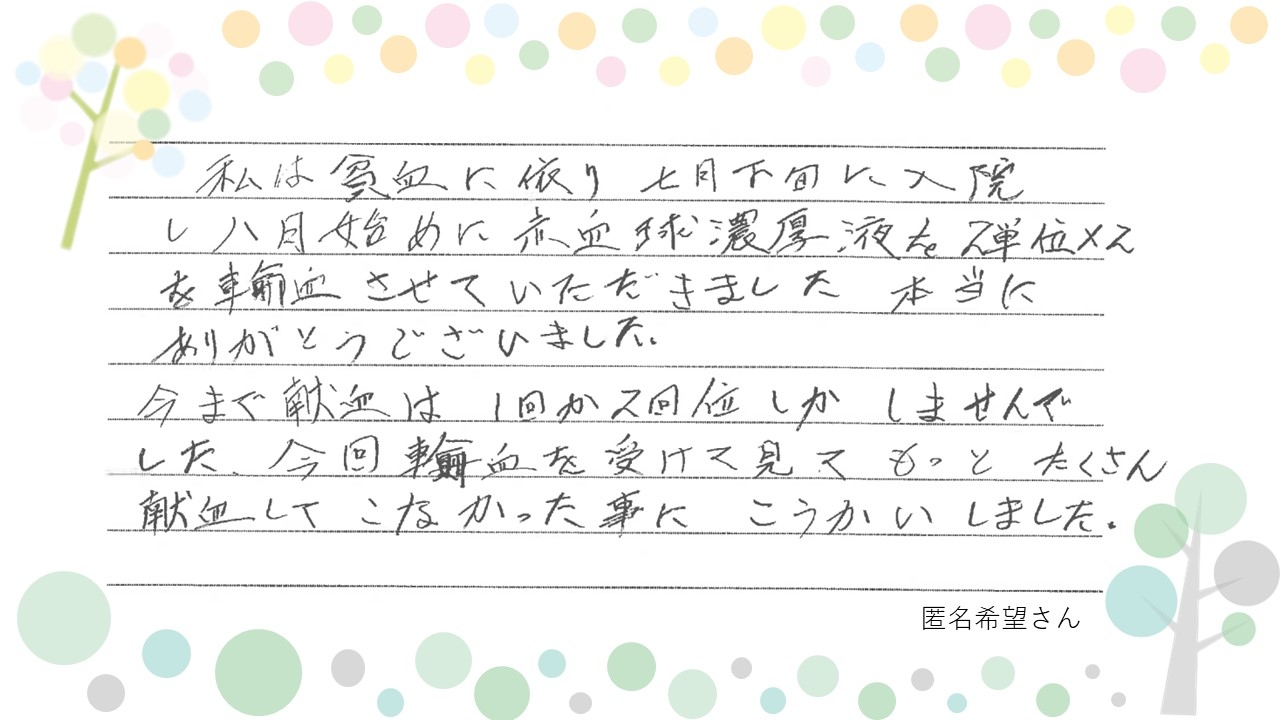 私は貧血に依り 七月下旬に入院
し八月始めに赤血球濃厚液を2単位×2
を輸血させていただきました 本当に
ありがとうございました。
今まで献血は 1回か2回位しか しませんで
した。今回輸血を受けて見て もっと たくさん
献血して こなかった事に こうかいしました。
匿名希望さん